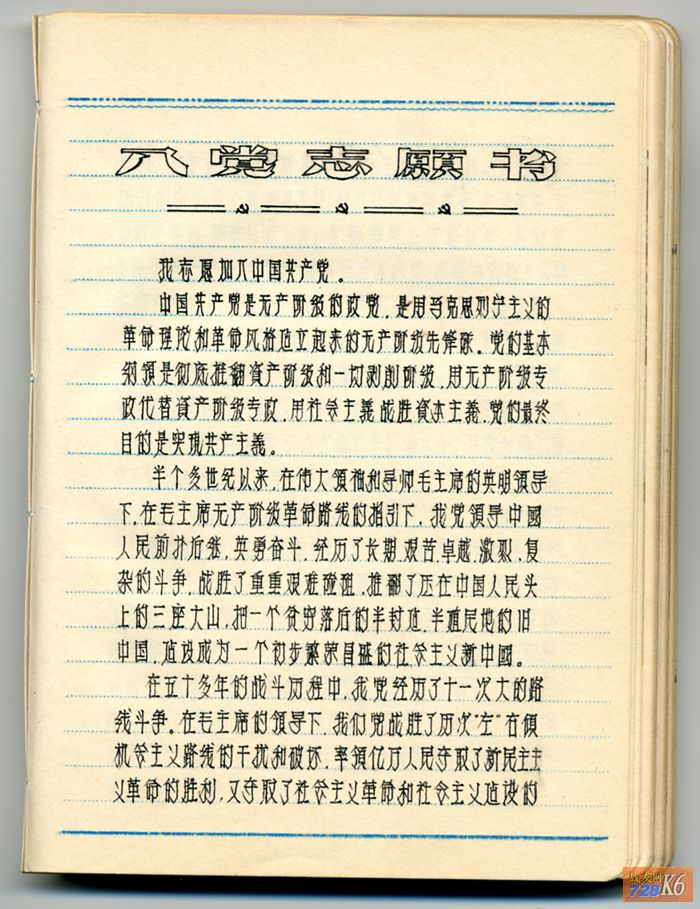 入党志愿书
我志愿加入中国共产党。
中国共产党是无产阶级的政党，是用马克思列宁主义的
革命理论和革命风格建立起来的无产阶级先锋队。党的基本
纲領是彻底推翻資产阶级和一切剥削阶级，用无产阶级专
政代替資产阶级专政，用社会主義战胜資本主義。党的最终
目的是实现共产主義。
半个多世纪以来，在伟大領袖和导师毛主席的英明領导
下，在毛主席无产阶级革命路线的指引下，我党領导中國
人民前扑后继，英勇奋斗，经历了长期、艰苦卓越、激烈、复
杂的斗争，战胜了重重艰难险阻，推翻了压在中国人民头
上的三座大山，把一个贫穷落后的半封建、半殖民地的旧
中国，建设成为一个初步繁荣昌盛的社会主义新中國。
在五十多年的战斗历程中，我党经历了十一次大的路
线斗争。在毛主席的領导下，我们党战胜了历次“左”右倾
机会主义路线的干扰和破坏，率領亿万人民夺取了新民主主
义革命的胜利，又夺取了社会主义革命和社会主义建设的
战友网
728K6